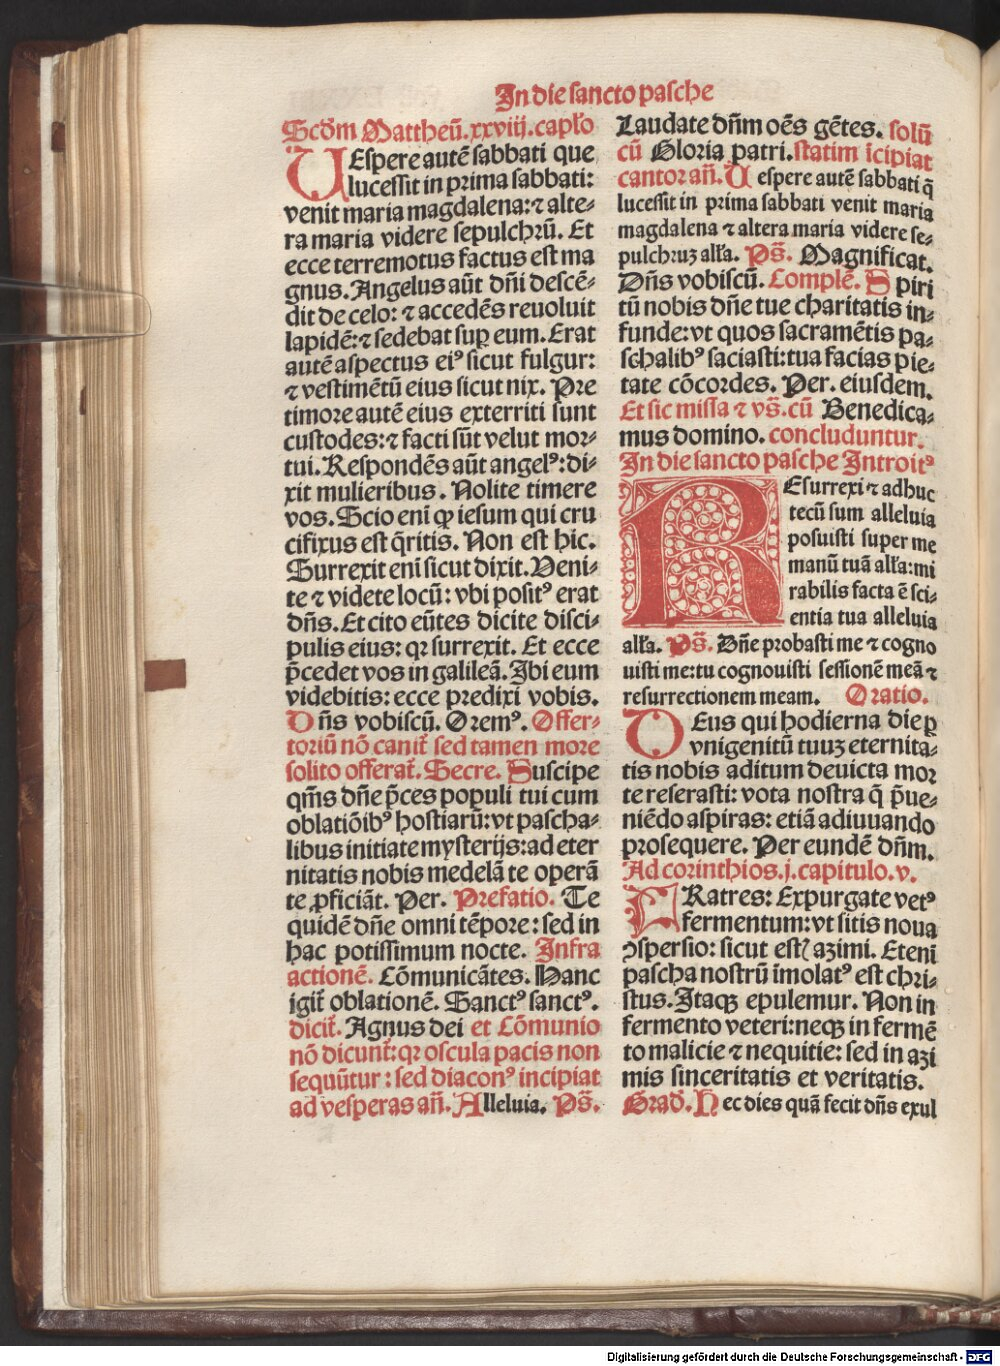 In die sancto pasche
Scd̄m Matthеū.xxviij.capło
VEspere autē sabbati que
lucessit in prima sabbati:
venit maria magdalena:⁊ alte-
ra maria videre sepulchrū. Et
ecce terremotus factus est ma
gnus. Angelus aūt dn̄i descē-
dit de celo: ⁊ accedēs reuoluit
lapidē:⁊ sedebat suꝑ eum. Erat
autē aspectus eiꝰ sicut fulgur:
⁊ vestimētū eius sicut nix. Pre
timore autē eius exterriti sunt
custodes:⁊ facti sūt velut mor-
tui. Respondēs aūt angelꝰ: di-
xit mulieribus. Nolite timere
vos. Scio eni ꝙ iesum qui cru
cifixus est q̄ritis. Non est hic.
Surrexit eni sicut dixit. Veni-
te ⁊ videte locū: vbi positꝰ erat
dn̄s. Et cito eūtes dicite disci-
pulis eius: qꝛ surrexit. Et ecce
p̄cedet vos in galileā. Ibi eum
videbitis: ecce predixi vobis.
Dn̄s vobiscū. Oremꝰ. Offer-
toriū nō canit̄ sed tamen more
solito offerat̄. Secre. Suscipe
qm̄s dn̄e p̄ces populi tui cum
oblatiōibꝰ hostiarū: vt pascha-
libus initiate mysterijs: ad eter
nitatis nobis medelā te operā
te ꝓficiāt. Per. Prefatio. Te
quidē dn̄e omni tēpore: sed in
hac potissimum nocte. Infra
actionē. Cōmunicātes. Hanc
igit̄ oblationē. Sanctꝰ sanctꝰ.
dicit̄. Agnus dei et Cōmunio
nō dicunt̄: qꝛ oscula pacis non
sequūtur: sed diaconꝰ incipiat
ad vesperas an̄. Alleluia. Ps̄.
Laudate dn̄m oēs gētes. solū
cū Gloria patri. statim īcipiat
cantor an̄. Uespere autē sabbati q̄
lucessit in prima sabbati venit maria
magdalena ⁊ altera maria videre se-
pulchruꝫ ałła. Ps̄. Magnificat.
Dn̄s vobiscū. Complē. Spiri
tū nobis dn̄e tue charitatis in-
funde: vt quos sacramētis pa-
schalibꝰ saciasti: tua facias pie-
tate cōcordes. Per. eiusdem.
Et sic missa ⁊ vs̄. cū Benedica-
mus domino. concluduntur.
In die sancto pasche Introitꝰ
REsurrexi ⁊ adhuc
tecū sum alleluia
posuisti super me
manū tuā ałła: mi
rabilis facta ē sci-
entia tua alleluia
ałła. Ps̄. Dn̄e probasti me ⁊ cogno
uisti me: tu cognouisti sessionē meā ⁊
resurrectionem meam. Oratio.
DEus qui hodierna die ꝑ
vnigenitū tuuꝫ eternita-
tis nobis aditum deuicta mor
te reserasti: vota nostra q̄ p̄ue-
niēdo aspiras: etiā adiuuando
prosequere. Per eundē dn̄m.
Ad corinthios. j. capitulo. v.
FRatres: Expurgate vetꝰ
fermentum: vt sitis noua
ꝯspersio: sicut estꝭ azimi. Etenī
pascha nostrū īmolatꝰ est chri-
stus. Itaqꝫ epulemur. Non in
fermento veteri: neqꝫ in fermē
to malicie ⁊ nequitie: sed in azi
mis sinceritatis et veritatis.
Grad̄. Hec dies quā fecit dn̄s exul
Digitalisierung gefördert durch die Deutsche Forschungsgemeinschaft - DFG